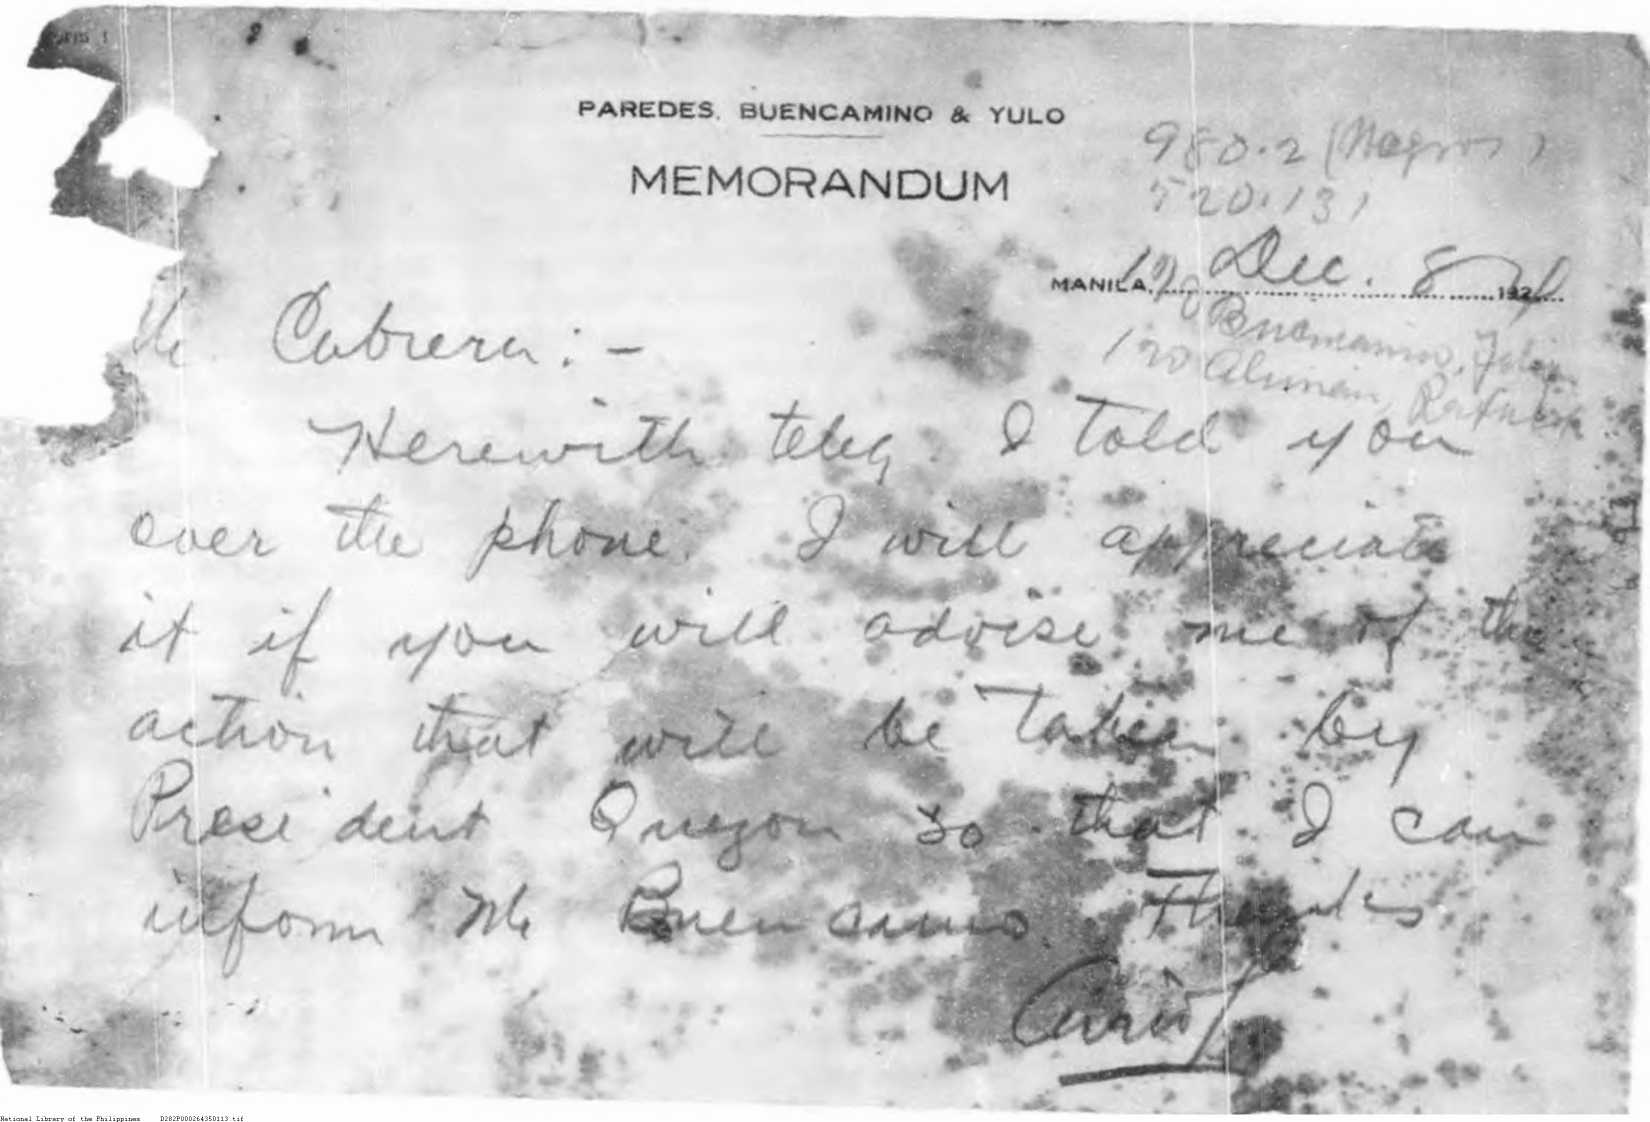 PAREDES, BUENCAMINO & YULO
MEMORANDUM
980.2 (Negros)
520.131
MANILA, Dec. 8 192
120 Buencamino, Felipe
120 Alunan, Rafael
Mr. Cabrera:-
Herewith teleg. I told you
over the phone. I will appreciate
it if you will advise me of the
action that will be taken by
President Quezon so that I can
inform Mr Buencamino. Thanks
National Library of the Philippines D282P000264350113.tif